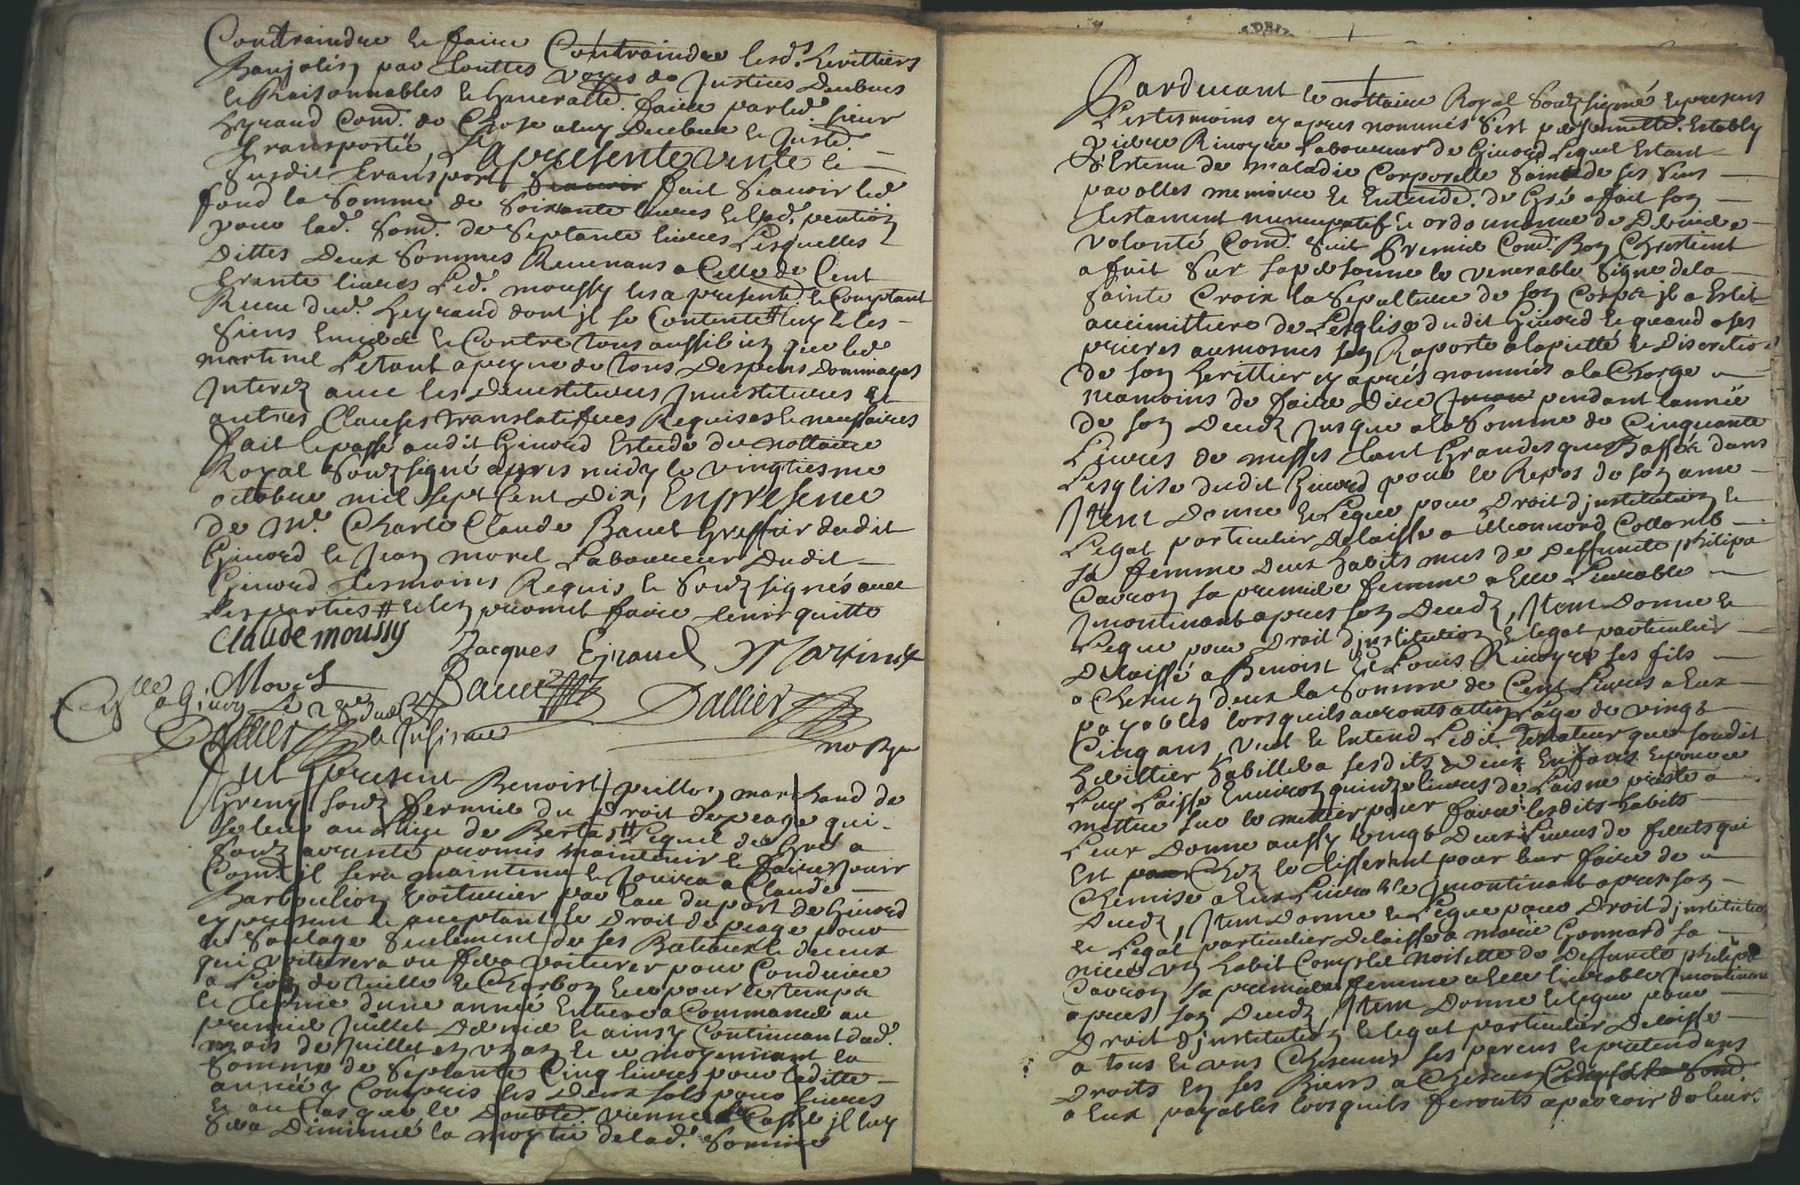 Contraindre & faire Contraindre lesd. herittiers
Banjolin par touttes voyes de Justices deubues
& Raisonnables & generalle. faire par led. sieur
Gyraud Comd. de Chose a luy deubue & Juste.
transportée, La presente vente &
Susdit transport fait Scavoir led.
fond la Somme de Soixante livres & lad. pention
pour lad. Somd. de Septante livres Lesquelles
dittes deux Sommes Revenans a Celle de Cent
trente livres Led. moussy les a presente. & Comptant
Receu dud. Geyraud dont jl se Contente # luy & les
Siens envers & Contre tous aussi bien que led.
martinel Letant a peyne de tous despens dommages
Interez avec les devestitures Jnvestitures &
autres Clauses translatifves Requises & necessaires
fait & passé audit Givord Estude du nottaire
Royal Soubzsigné apres midy le vingtiesme
octobre mil sept Cent dix, En presence
de Mr. Charle Claude Bauel Greffier dudit
Givord & Jean morel Laboureur dudit
Givord tesmoins Requis & Soubzsignés avec
les parties # & les promet faire tenir quitte
Claude moussy
Jacques Gyraud Martinel
Morel Bauel Dallier
no Ryal
Dallier
Fut present Benoist peillon marchand de
Greny soubz fermier du droit de peage qui
se leve au lieu de # Lequel de Gré a
Soubz promis maintenir & faire Jouir
Comd. il sera maintenu & Jouira a Claude
Barboulion voiturier par eau du port de Givord
cy present & acceptant le droit de peage pour
le Seulement de ses Batteaux & de ceux
qui voiturera ou fera voiturer pour Conduire
a Lion de & Charbon & ce pour le temps
& terme d'une année Entiere a Commancé au
premier Juillet dernier & ainsy Continuant dud.
mois de Juillet en un an & ce moyennant la
Somme de Septante Cinq livres pour laditte
année y Compris les deux sols pour livres
& au Cas que le double vienne a Casse il luy
Sera diminué la moytié de lad. Somme
Pardevant le nottaire Royal Soubzsigné & presens
Les tesmoins cy apres nommés S'est personnelle. Estably
pierre Rivoyre Laboureur de Givord Lequel Estant
d'Estenu de maladie Corporelle Sain de ses Sens
parolles memoire & Entende. de Gré a fait son
testament nuncupatif & ordonnance de derniere
volonté Comd. Suit Premier Comd. Bon Chrestient
a fait Sur sa personne le venerable Signe de la
Sainte Croix la Sepulture de son Corps jl a Eslit
au cimittiere de L'esglise dudit Givord & quand a ses
prieres aumosnes sen Raporte a la piette & discretion
de son herittier cy après nommés a la Charge
neamoins de faire dire pendant l'année
de son decedz Jusque a la Somme de Cinquante
Livres de messes tant Grandes que Basses dans
L'esglise dudit Givord pour le Repos de son ame
Jtem donne & Legue pour droit d'jnstitution &
Legat particulier delaisse a Leonnord Collomb
sa femme deux habits mis de deffunte philipa
Cavron sa premiere femme a Elle Livrable
Jncontinant apres son decedz, Jtem donne &
Legue pour droit d'jnstitution & legat particulier
delaissé a Benoist & Louis Rivoyre ses fils
a Chescun d'eux la Somme de Cent Livres a Eux
payables lorsquils auronts attein l'age de vingt
Cinq ans, veut & Entend Ledit testateur que sondit
herittier habillera sesdits deux Enfans & pour ce
Luy Laisse Environ quinze livres de Laisne preste a
mettre sur le mettier pour faire lesdits habits
Leur donne aussy vingt deux Livres de fillets qui
Est Chez le tisserant pour leur faire de
Chemise a Eux Livrable Jncontinant apres son
decedz, Jtem donne & Legue pour droit d'jnstitution
& Legat particulier delaisse a marie Gonnard sa
niece un habit Complet noisette de deffunte philipa
Cavron sa premiere femme a Elle livrable Jncontinant
apres son decedz, Jtem donne & legue pour
droit d'jnstitution & legat particulier delaisse
a tous & uns Chescuns ses parens & pretendans
droits en ses Biens a Chescun
a Eux payables lorsquils feronts aparoir de leur.